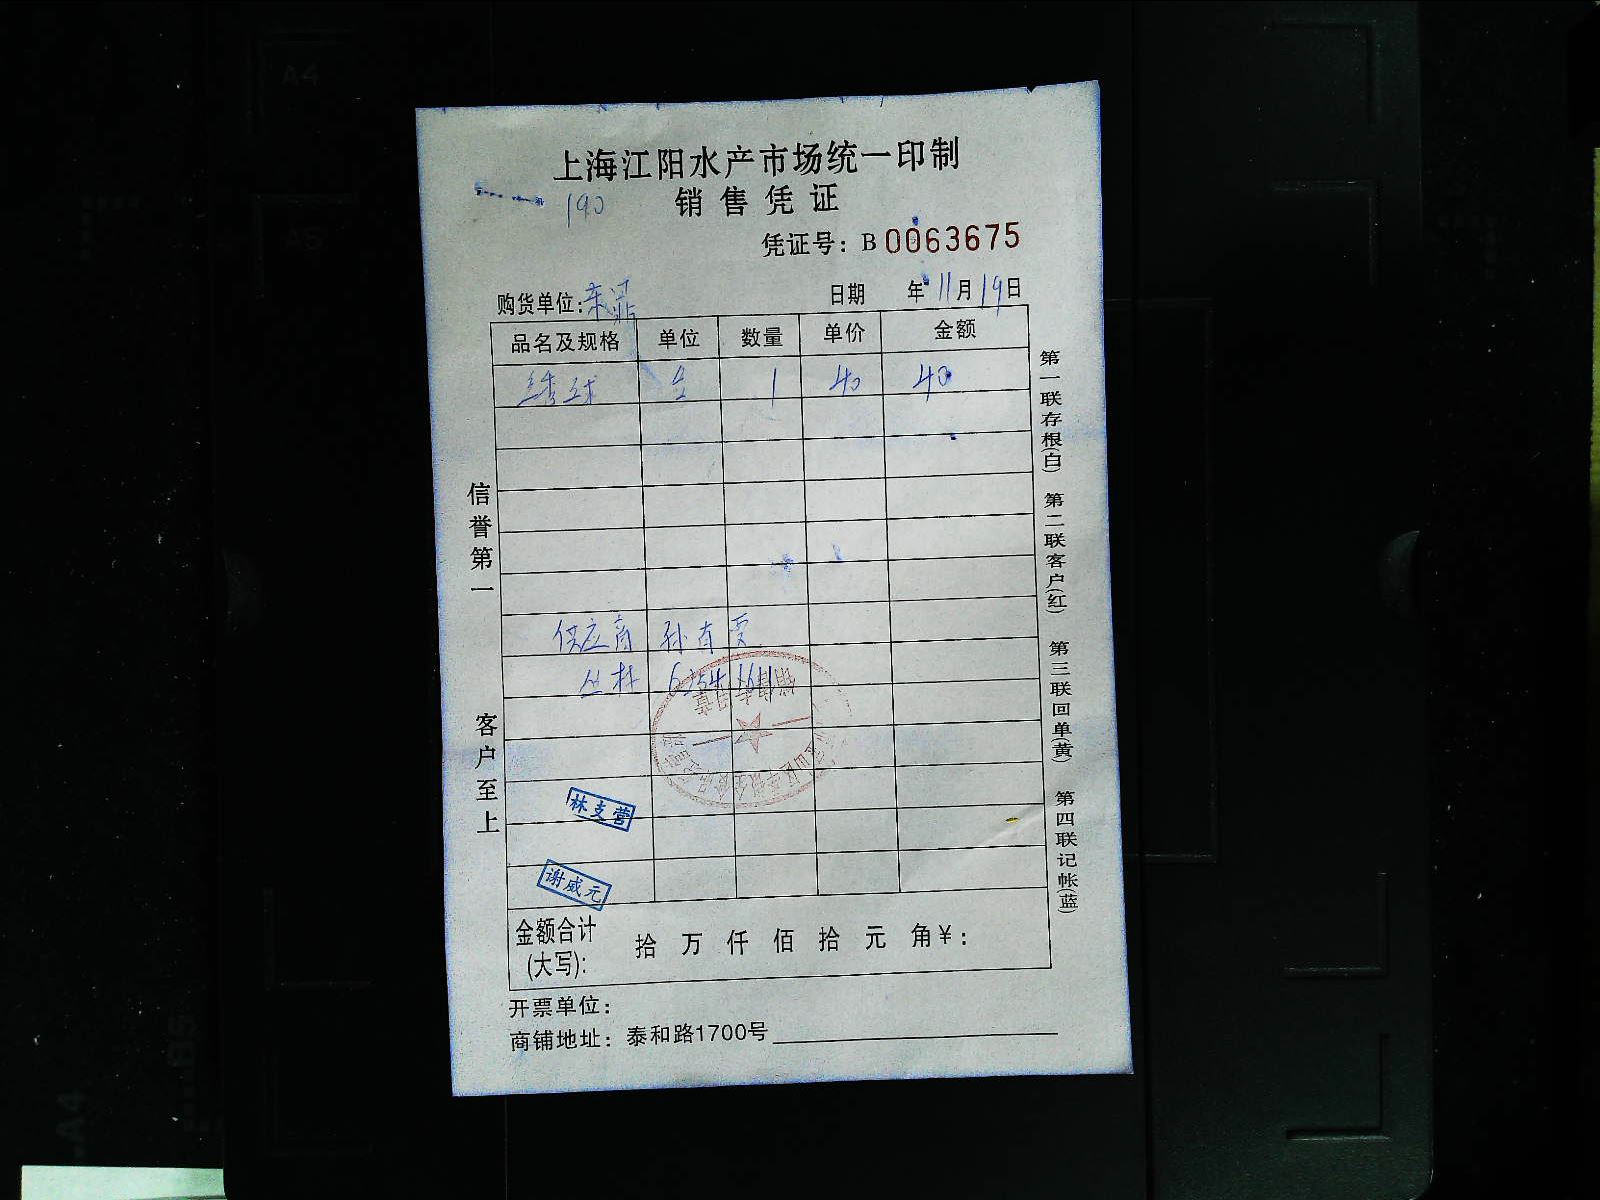 上海江阳水产市场统一印制
190
销售凭证
凭证号：B 0063675
购货单位：东鼎
日期 年 11月19日
品名及规格 单位 数量 单价 金额
绣球 1 40 40
供应商 孙有
丛林
林支营
谢威元
金额合计(大写)： 拾 万 仟 佰 拾 元 角¥：
开票单位：
商铺地址：泰和路1700号
信誉第一 客户至上
第一联存根(白) 第二联客户(红) 第三联回单(黄) 第四联记帐(蓝)